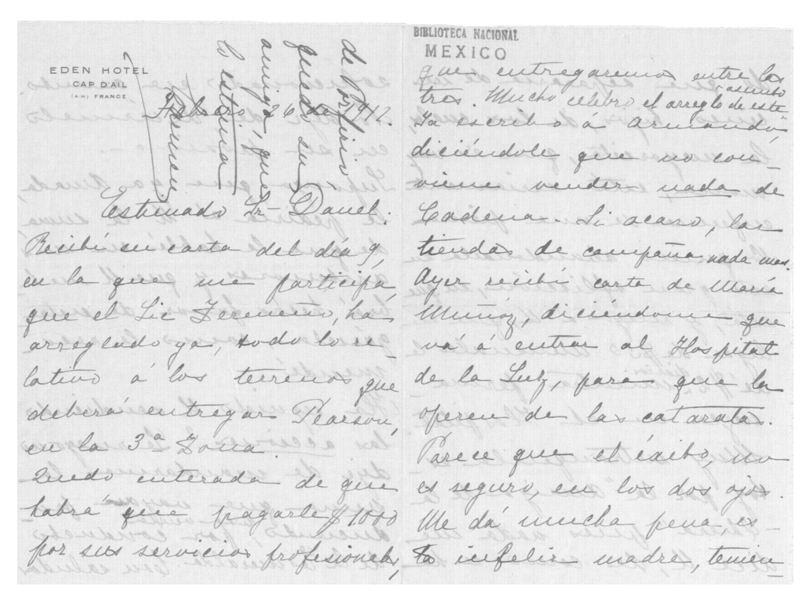 EDEN HOTEL
CAP D'AIL
(A-M) FRANCE
de Porfirio
queda su
amiga, que
lo estima
Carmen
1912.
Estimado Sr. Danel:
Recibí su carta del día 9,
en la que me participa,
que el Lic Terereño, ha
arreglado ya, todo lo re-
lativo á los terrenos que
deberá entregar Pearson,
en la 3ª Zona.
Quedo enterada de que
habrá que pagarle $1000
por sus servicios profesionales,
BIBLIOTECA NACIONAL
MEXICO
que entregaremos entre los
tres. Mucho celebro el arreglo de este
asunto
Ya escribo á á Armando,
diciéndole que no con-
viene vender nada de
Cadena. Si acaso, las
tiendas de campaña nada mas.
Ayer recibí carta de María
Muñoz, diciéndome que
vá á entrar al Hospital
de la Luz, para que la
operen de las cataratas.
Parece que el éxito, no
es seguro, en los dos ojos.
Me dá mucha pena es-
ta infeliz madre, tenien